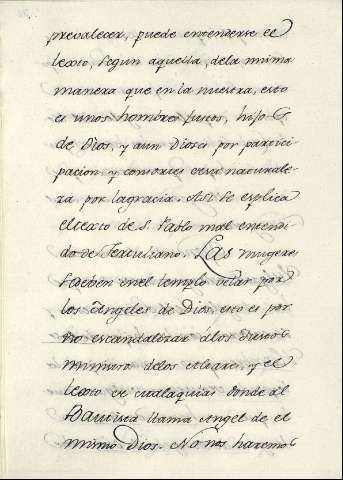 prevalecer, puede entenderse el
texto, segun aquella, dela misma
manera que en la nuestra, esto
es unos hombres justos, hijos
de Dios, y aun Dioses por partici-
pacion, y consortes desu naturale-
za por lagracia. Asi se esplica
el texto de S. Pablo mal entendi-
do de Tertuliano. Las mugeres
se deben en el templo velar por
los Angeles de Dios, esto es por
no escandalizar álos Sacros
ministros delos altares, y el
texto de Malaquias donde al
Bautista llama Angel de el
mismo Dios. No nos haremos